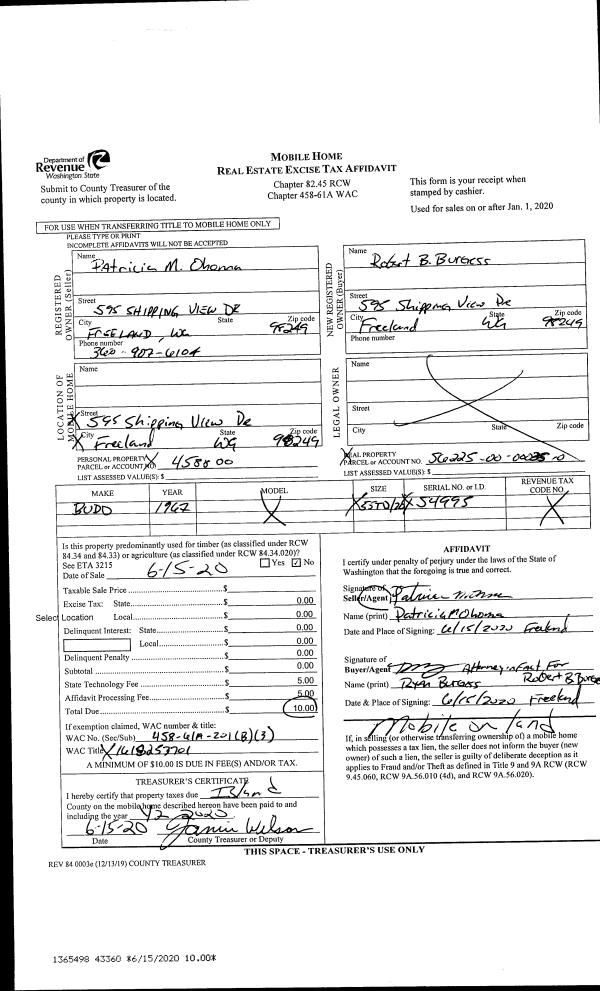 Department of
Revenue
Washington State
Submit to County Treasurer of the
county in which property is located.
MOBILE HOME
REAL ESTATE EXCISE TAX AFFIDAVIT
Chapter 82.45 RCW
Chapter 458-61A WAC
This form is your receipt when
stamped by cashier.
Used for sales on or after Jan. 1, 2020
FOR USE WHEN TRANSFERRING TITLE TO MOBILE HOME ONLY
PLEASE TYPE OR PRINT
INCOMPLETE AFFIDAVITS WILL NOT BE ACCEPTED
REGISTERED OWNER (Seller)
Name
Patricia M. Ohonna
Street
595 SHIPPING VIEW DR
City State Zip code
FREELAND, WA 98249
Phone number
360-907-6104
NEW REGISTERED OWNER (Buyer)
Name
Robert B. Burgess
Street
595 Shipping View Dr
City State Zip code
Freeland WA 98249
Phone number
LOCATION OF MOBILE HOME
Name
Street
595 Shipping View Dr
City State Zip code
Freeland WA 98249
PERSONAL PROPERTY
PARCEL or ACCOUNT NO. 458800
LIST ASSESSED VALUE(S): $
LEGAL OWNER
Name
Street
City State Zip code
REAL PROPERTY
PARCEL or ACCOUNT NO. S6225-00-00035-0
LIST ASSESSED VALUE(S): $
MAKE YEAR MODEL SIZE SERIAL NO. or I.D. REVENUE TAX CODE NO.
BUDD 1967 X S4995
Is this property predominantly used for timber (as classified under RCW
84.34 and 84.33) or agriculture (as classified under RCW 84.34.020)?
See ETA 3215 Yes No
Date of Sale 6-15-20
Taxable Sale Price $
Excise Tax: State $ 0.00
Select Location Local $ 0.00
Delinquent Interest: State $ 0.00
Local $ 0.00
Delinquent Penalty $ 0.00
Subtotal $ 0.00
State Technology Fee $ 5.00
Affidavit Processing Fee $ 5.00
Total Due $ 10.00
If exemption claimed, WAC number & title:
WAC No. (Sec/Sub) 458-61A-201(B)(3)
WAC Title 1618257701
A MINIMUM OF $10.00 IS DUE IN FEE(S) AND/OR TAX.
TREASURER'S CERTIFICATE
I hereby certify that property taxes due Island
County on the mobile home described hereon have been paid to and
including the year 1/2 2020
6-15-20
Date County Treasurer or Deputy
AFFIDAVIT
I certify under penalty of perjury under the laws of the State of
Washington that the foregoing is true and correct.
Signature of
Seller/Agent
Name (print) Patricia M Ohonna
Date and Place of Signing: 6/15/2020 Freeland
Signature of
Buyer/Agent Attorney in Fact For
Robert B Burgess
Name (print) Ryan Burgess
Date & Place of Signing: 6/15/2020 Freeland
Mobile on land
If, in selling (or otherwise transferring ownership of) a mobile home
which possesses a tax lien, the seller does not inform the buyer (new
owner) of such a lien, the seller is guilty of deliberate deception as it
applies to Fraud and/or Theft as defined in Title 9 and 9A RCW (RCW
9.45.060, RCW 9A.56.010 (4d), and RCW 9A.56.020).
THIS SPACE - TREASURER'S USE ONLY
REV 84 0003e (12/13/19) COUNTY TREASURER
1365498 43360 *6/15/2020 10.00*